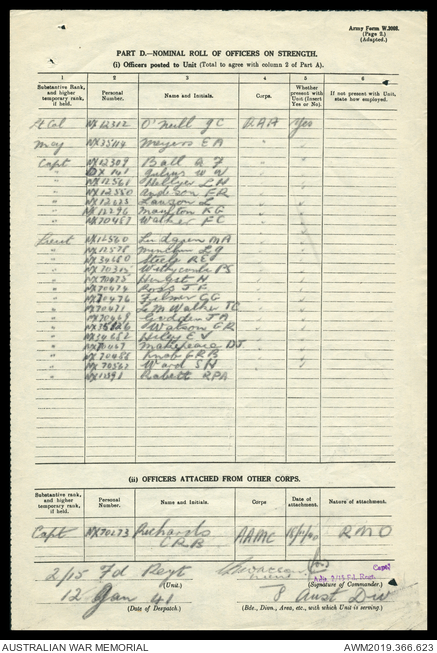 Army Form W.3008.
(Page 2.)
(Adapted.)
PART D.—NOMINAL ROLL OF OFFICERS ON STRENGTH.
(i) Officers posted to Unit (Total to agree with column 2 of Part A).
1 2 3 4 5 6
Substantive Rank, and higher temporary rank, if held. Personal Number. Name and Initials. Corps. Whether present with Unit (Insert Yes or No). If not present with Unit, state how employed.
Lt Col NX12312 O'Neill J C RAA Yes
Maj Meyers E A
Capt NX12309 Ball A F
Julius W N
NX12567 Hellyer L H
NX12550 Anderson F R
NX12623 Lawson L
NX12296 Maughton K G
NX70457 Walker F C
Lieut NX12560 Lindgren M A
NX12578 Minchin L G
NX34680 Steele R E
NX70305 Withycombe P S
NX70475 Hingst H
NX70474 Ross J F
NX70476 Filmer G G
NX70471 Le M Walker T C
Godden J A
Watson G R
NX34682 Hiley E V
Makepeace D J
NX70486 Knob G R B
NX70562 Ward S H
Rabett R P A
(ii) OFFICERS ATTACHED FROM OTHER CORPS.
Substantive rank, and higher temporary rank, if held. Personal Number. Name and Initials. Corps Date of attachment. Nature of attachment.
Capt NX70273 Richards AAMC RMO
C R B
2/15 Fd Regt Capt
(Unit). (Signature of Commander).
12 Jan 41 8 Aust Div
(Date of Despatch). (Bde., Divn., Area, etc., with which Unit is serving).
AUSTRALIAN WAR MEMORIAL AWM2019.366.623